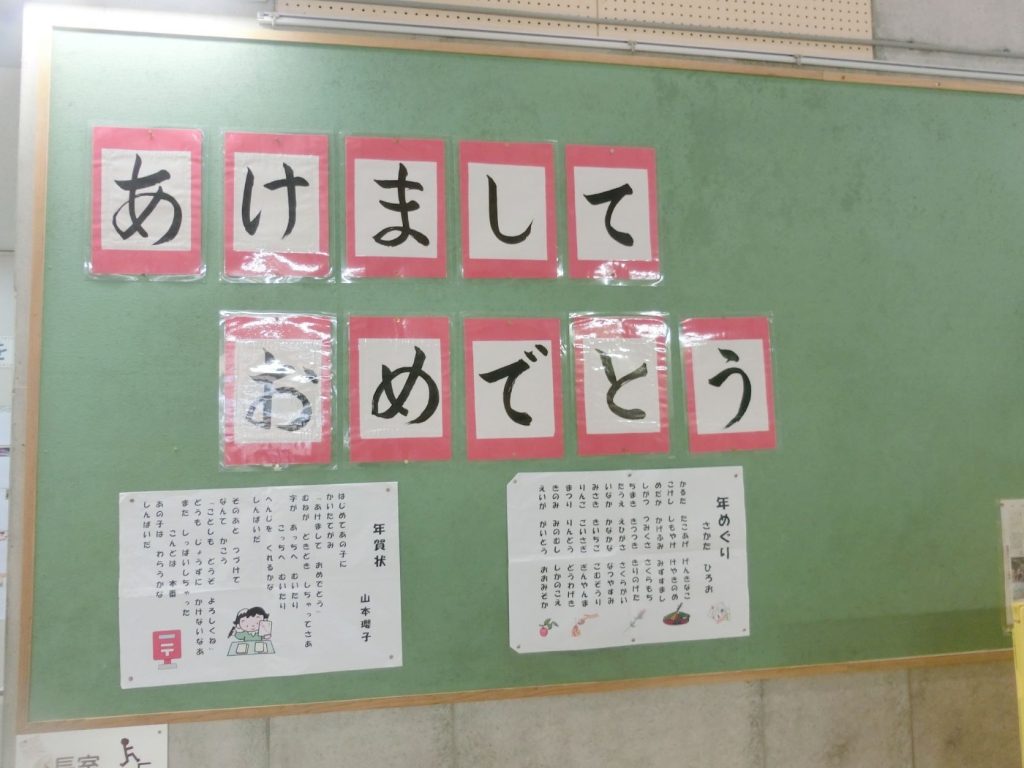 あけまして
おめでとう
年賀状
山本瓔子
はじめてあの子に
かいたてがみ
「あけまして　おめでとう」
むねが　どきどき　しちゃってさあ
字が　あっちへ　むいたり
こっちへ　むいたり
へんじを　くれるかな
しんぱいだ
そのあと　つづけて
なんて　かこう
「ことしも　どうぞ　よろしくね」
どうも　じょうずに　かけないなあ
また　しっぱいしちゃった
こんどは　本番
あの子は　わらうかな
しんぱいだ
年めぐり
さかた　ひろお
かるた　たこあげ　げんきなこ
こけし　しもやけ　けやきのめ
めだか　かげふみ　みずすまし
しがつ　つみくさ　さくらもち
ちまき　きつつき　きりのけた
たうえ　えひがさ　さくらがい
いなか　かなかな　なつやすみ
みさき　きいちご　ごむぞうり
りんご　こいさぎ　ぎんやんま
まつり　りんどう　どうわげき
きのみ　みのむし　しかのこえ
えいが　がいとう　おおみそか
長室